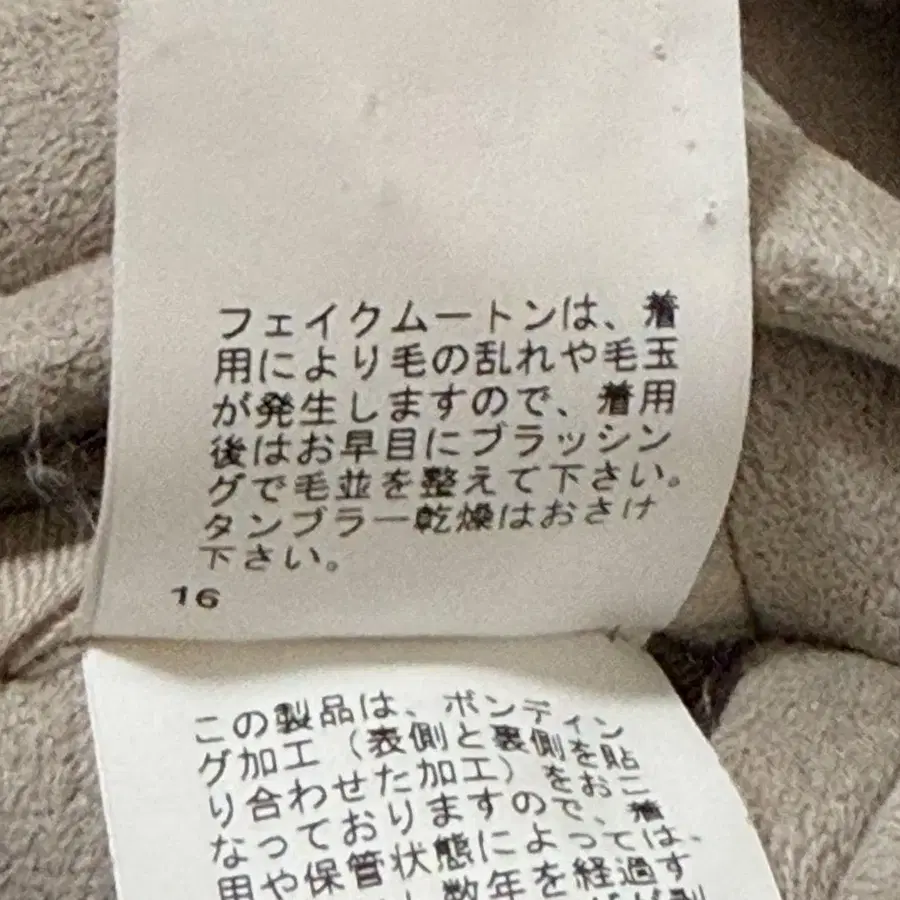 フェイクムートンは、着
用により毛の乱れや毛玉
が発生しますので、着用
後はお早目にブラッシン
グで毛並を整えて下さい。
タンブラー乾燥はおさけ
下さい。
16
この製品は、ボンディン
グ加工（表側と裏側を貼
り合わせた加工）をおこ
なっておりますので、着
用や保管状態によっては、
数年を経過す